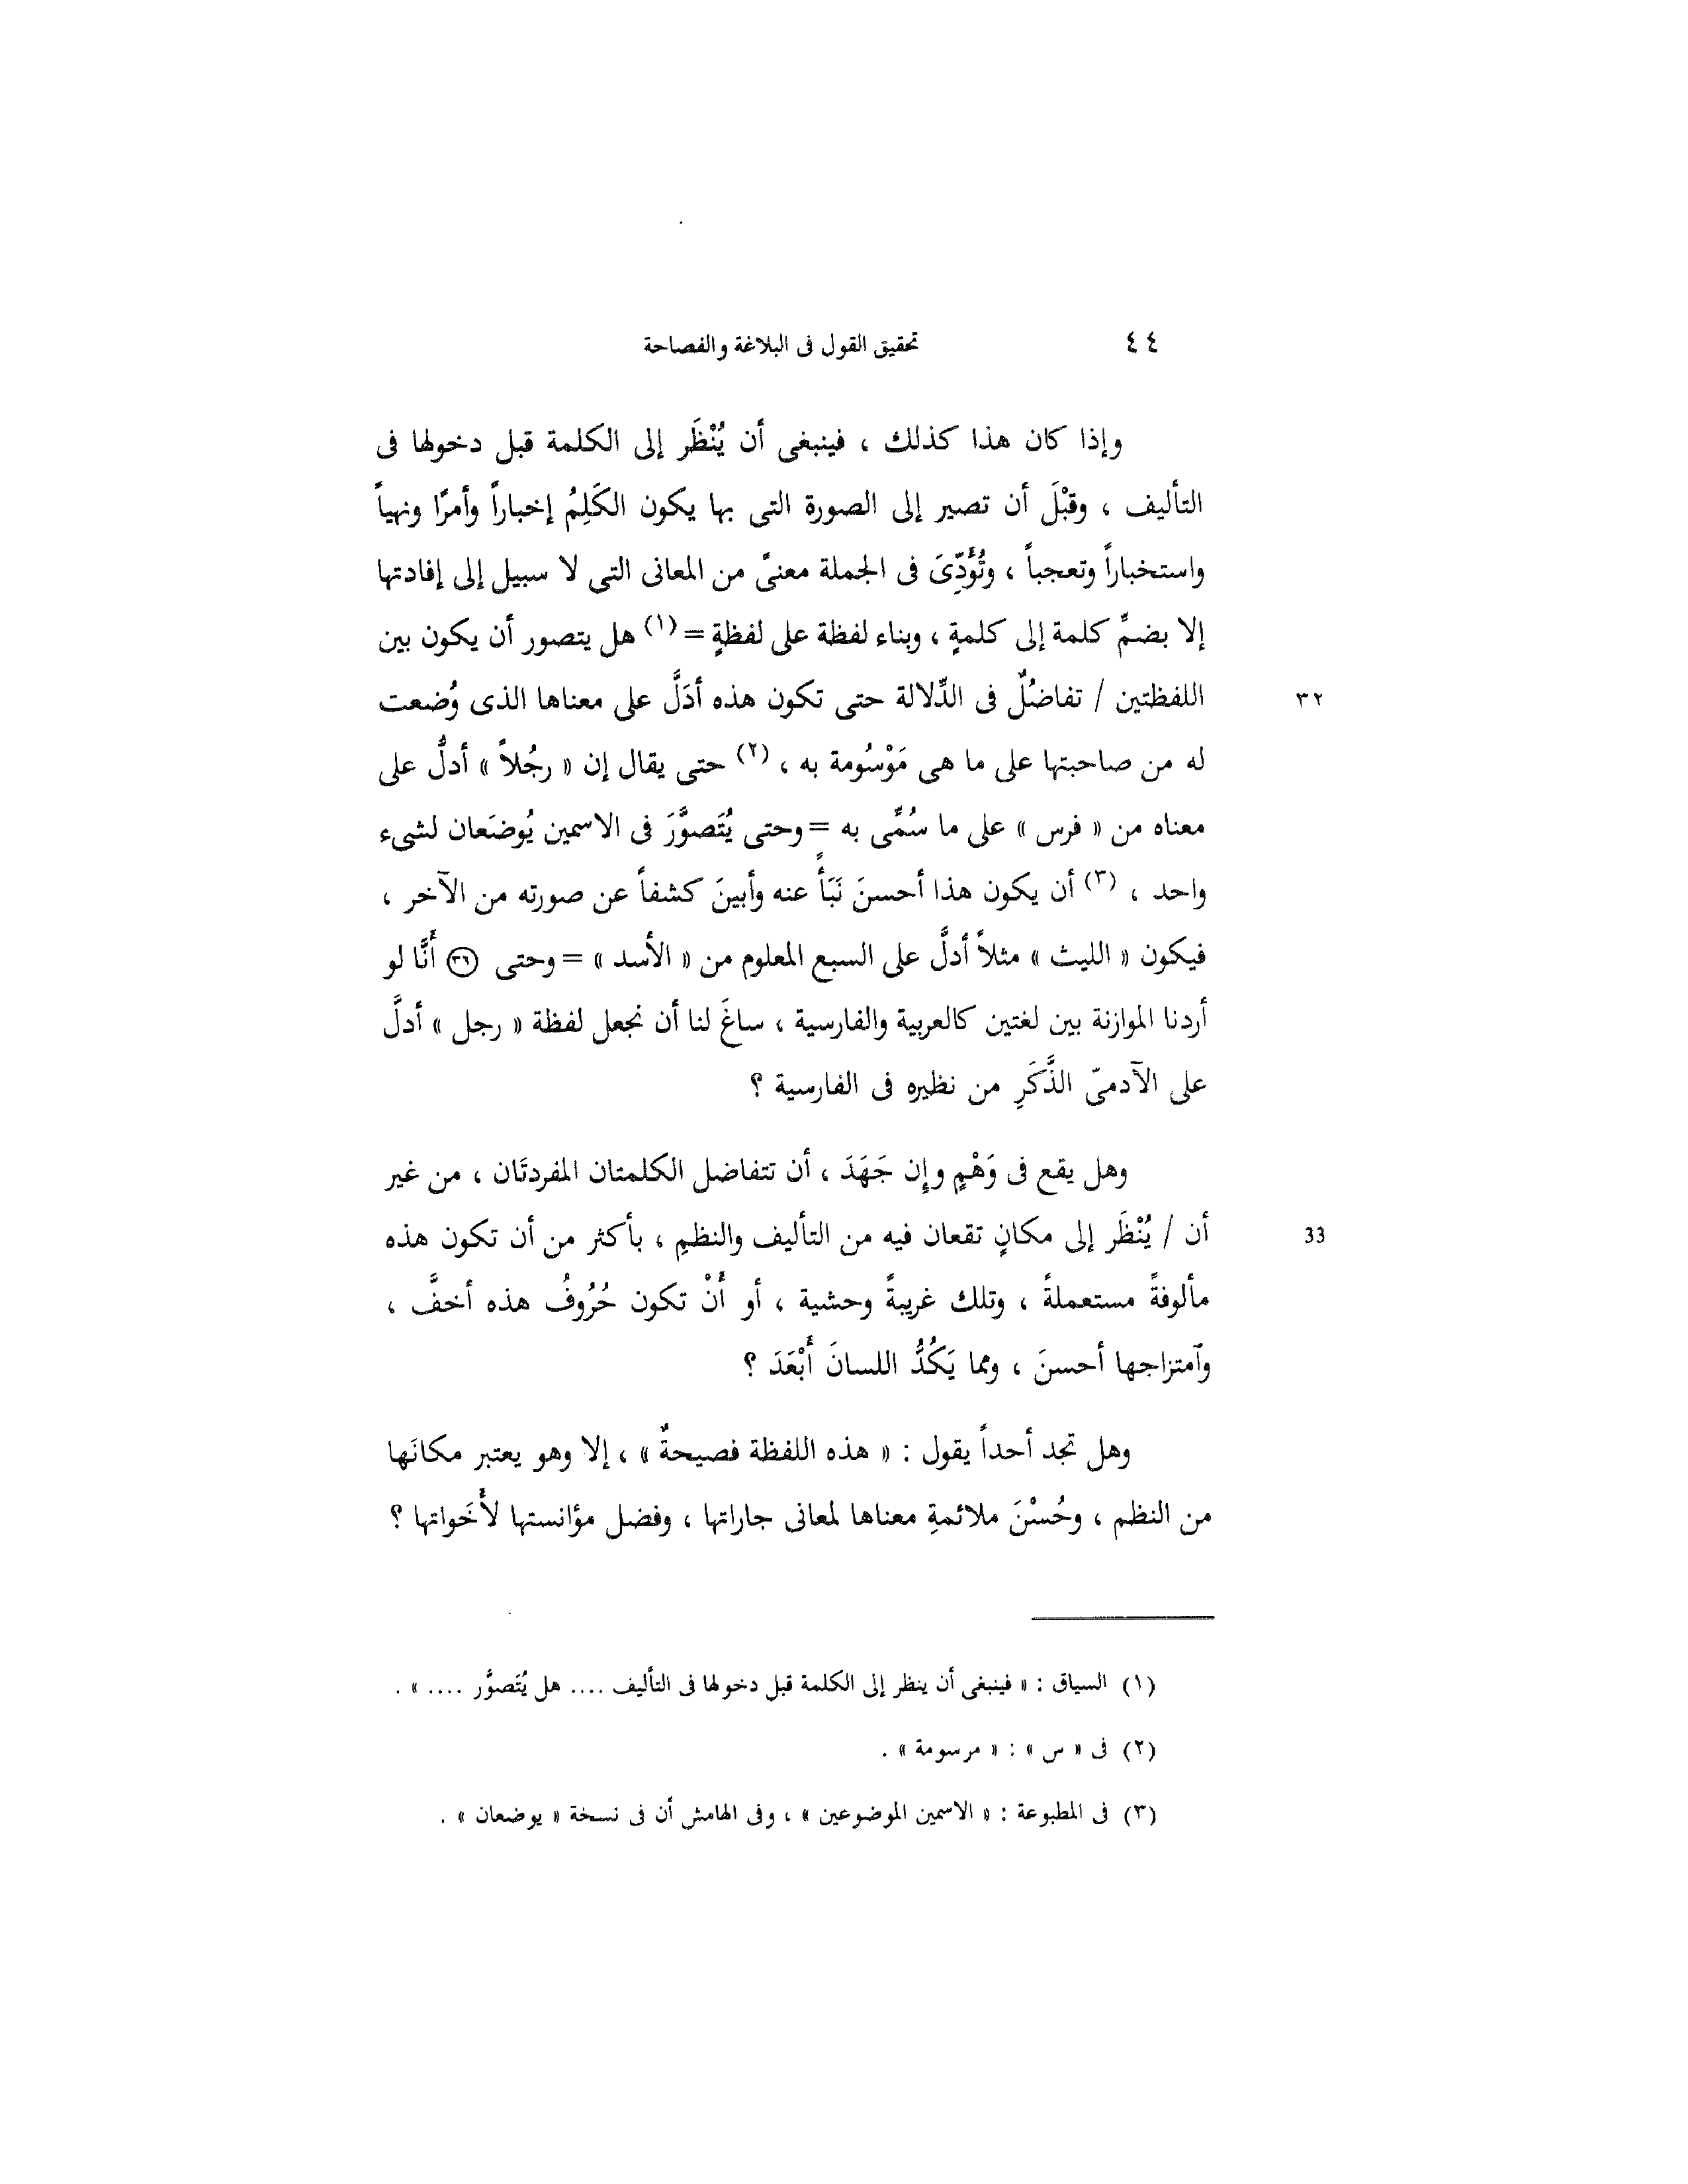 ٤٤
تحقيق القول فى البلاغة والفصاحة
وإذا كان هذا كذلك ، فينبغى أن يُنْظَر إلى الكلمة قبل دخولها فى
التأليف ، وقبْلَ أن تصير إلى الصورة التى بها يكون الكَلِمُ إخباراً وأمرًا ونهياً
واستخباراً وتعجباً ، وتُؤَدِّىَ فى الجملة معنىً من المعانى التى لا سبيل إلى إفادتها
إلا بضمِّ كلمة إلى كلمةٍ ، وبناء لفظة على لفظةٍ = (١) هل يتصور أن يكون بين
اللفظتين / تفاضُلٌ فى الدِّلالة حتى تكون هذه أدَلَّ على معناها الذى وُضعت
٣٢
له من صاحبتها على ما هى مَوْسُومة به ، (٢) حتى يقال إن « رجُلاً » أدلُّ على
معناه من « فرس » على ما سُمِّى به = وحتى يُتَصوَّرَ فى الاسمين يُوضَعان لشىء
واحد ، (٣) أن يكون هذا أحسنَ نَبَأً عنه وأبينَ كشفاً عن صورته من الآخر ،
فيكون « الليث » مثلاً أدلَّ على السبع المعلوم من « الأسد » = وحتى ٣٦ أَنَّا لو
أردنا الموازنة بين لغتين كالعربية والفارسية ، ساغَ لنا أن نجعل لفظة « رجل » أدلَّ
على الآدمىّ الذَّكَرِ من نظيره فى الفارسية ؟
وهل يقع فى وَهْمٍ وإن جَهَدَ ، أن تتفاضل الكلمتان المفردتَان ، من غير
أن / يُنْظَر إلى مكانٍ تقعان فيه من التأليف والنظمِ ، بأكثر من أن تكون هذه
33
مألوفةً مستعملةً ، وتلك غريبةً وحشية ، أو أَنْ تكون حُرُوفُ هذه أخفَّ ،
وٱمتزاجها أحسنَ ، ومما يَكُدُّ اللسانَ أَبْعَدَ ؟
وهل تجد أحداً يقول : « هذه اللفظة فصيحةٌ » ، إلا وهو يعتبر مكانَها
من النظم ، وحُسْنَ ملائمةِ معناها لمعانى جاراتها ، وفضل مؤانستها لأَخَواتها ؟
(١) السياق : « فينبغى أن ينظر إلى الكلمة قبل دخولها فى التأليف .... هل يُتَصوَّر .... » .
(٢) فى « س » : « مرسومة » .
(٣) فى المطبوعة : « الاسمين الموضوعين » ، وفى الهامش أن فى نسخة « يوضعان » .